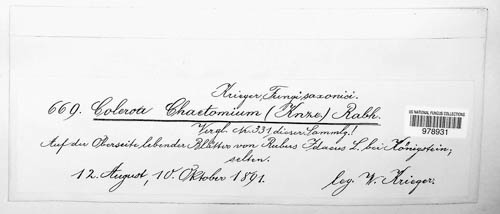 Krieger, Fungi saxonici.
669. Coleroa Chaetomium (Knze.) Rabh.
Vergl. No. 331 dieser Sammlg.!
Auf der Oberseite lebender Blätter von Rubus Idaeus L. bei Königstein,
selten.
12. August, 10. Oktober 1891. leg. W. Krieger.
US NATIONAL FUNGUS COLLECTIONS
978931